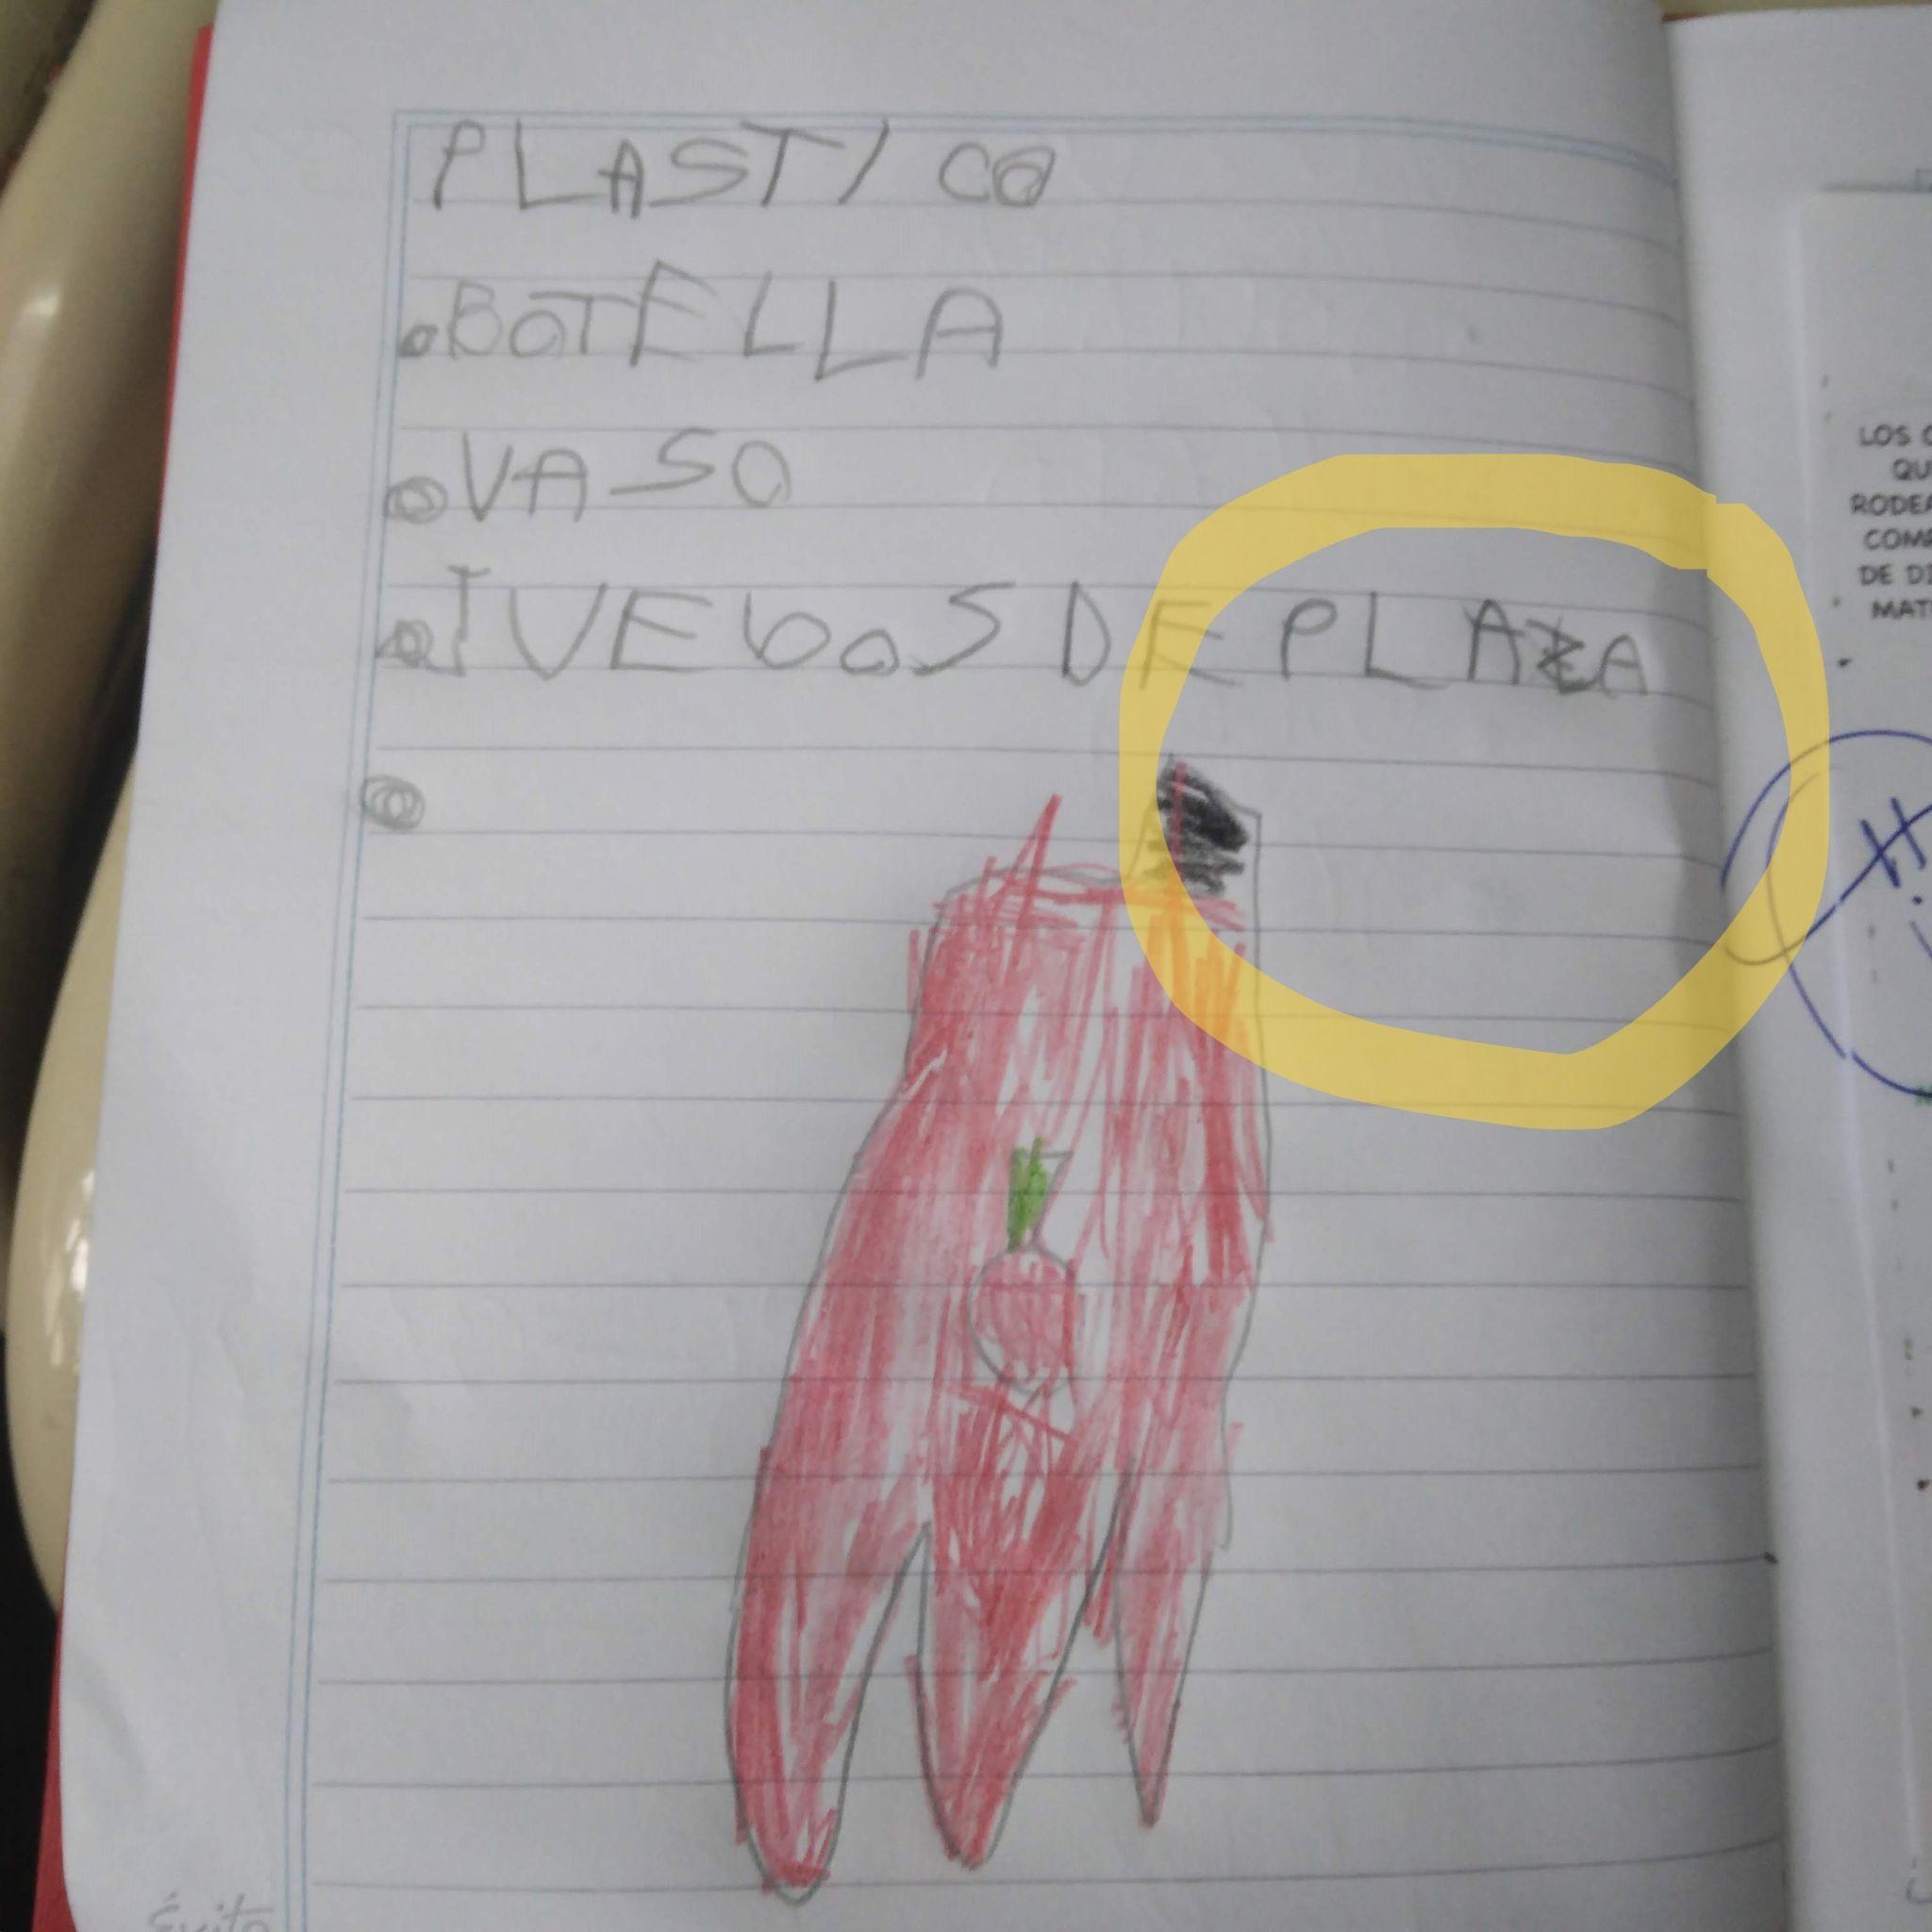 PLASTICO
BOTELLA
VASO
JUEGOS DE PLAZA
LOS
QU
RODEA
COM
DE DI
MAT
Éxito